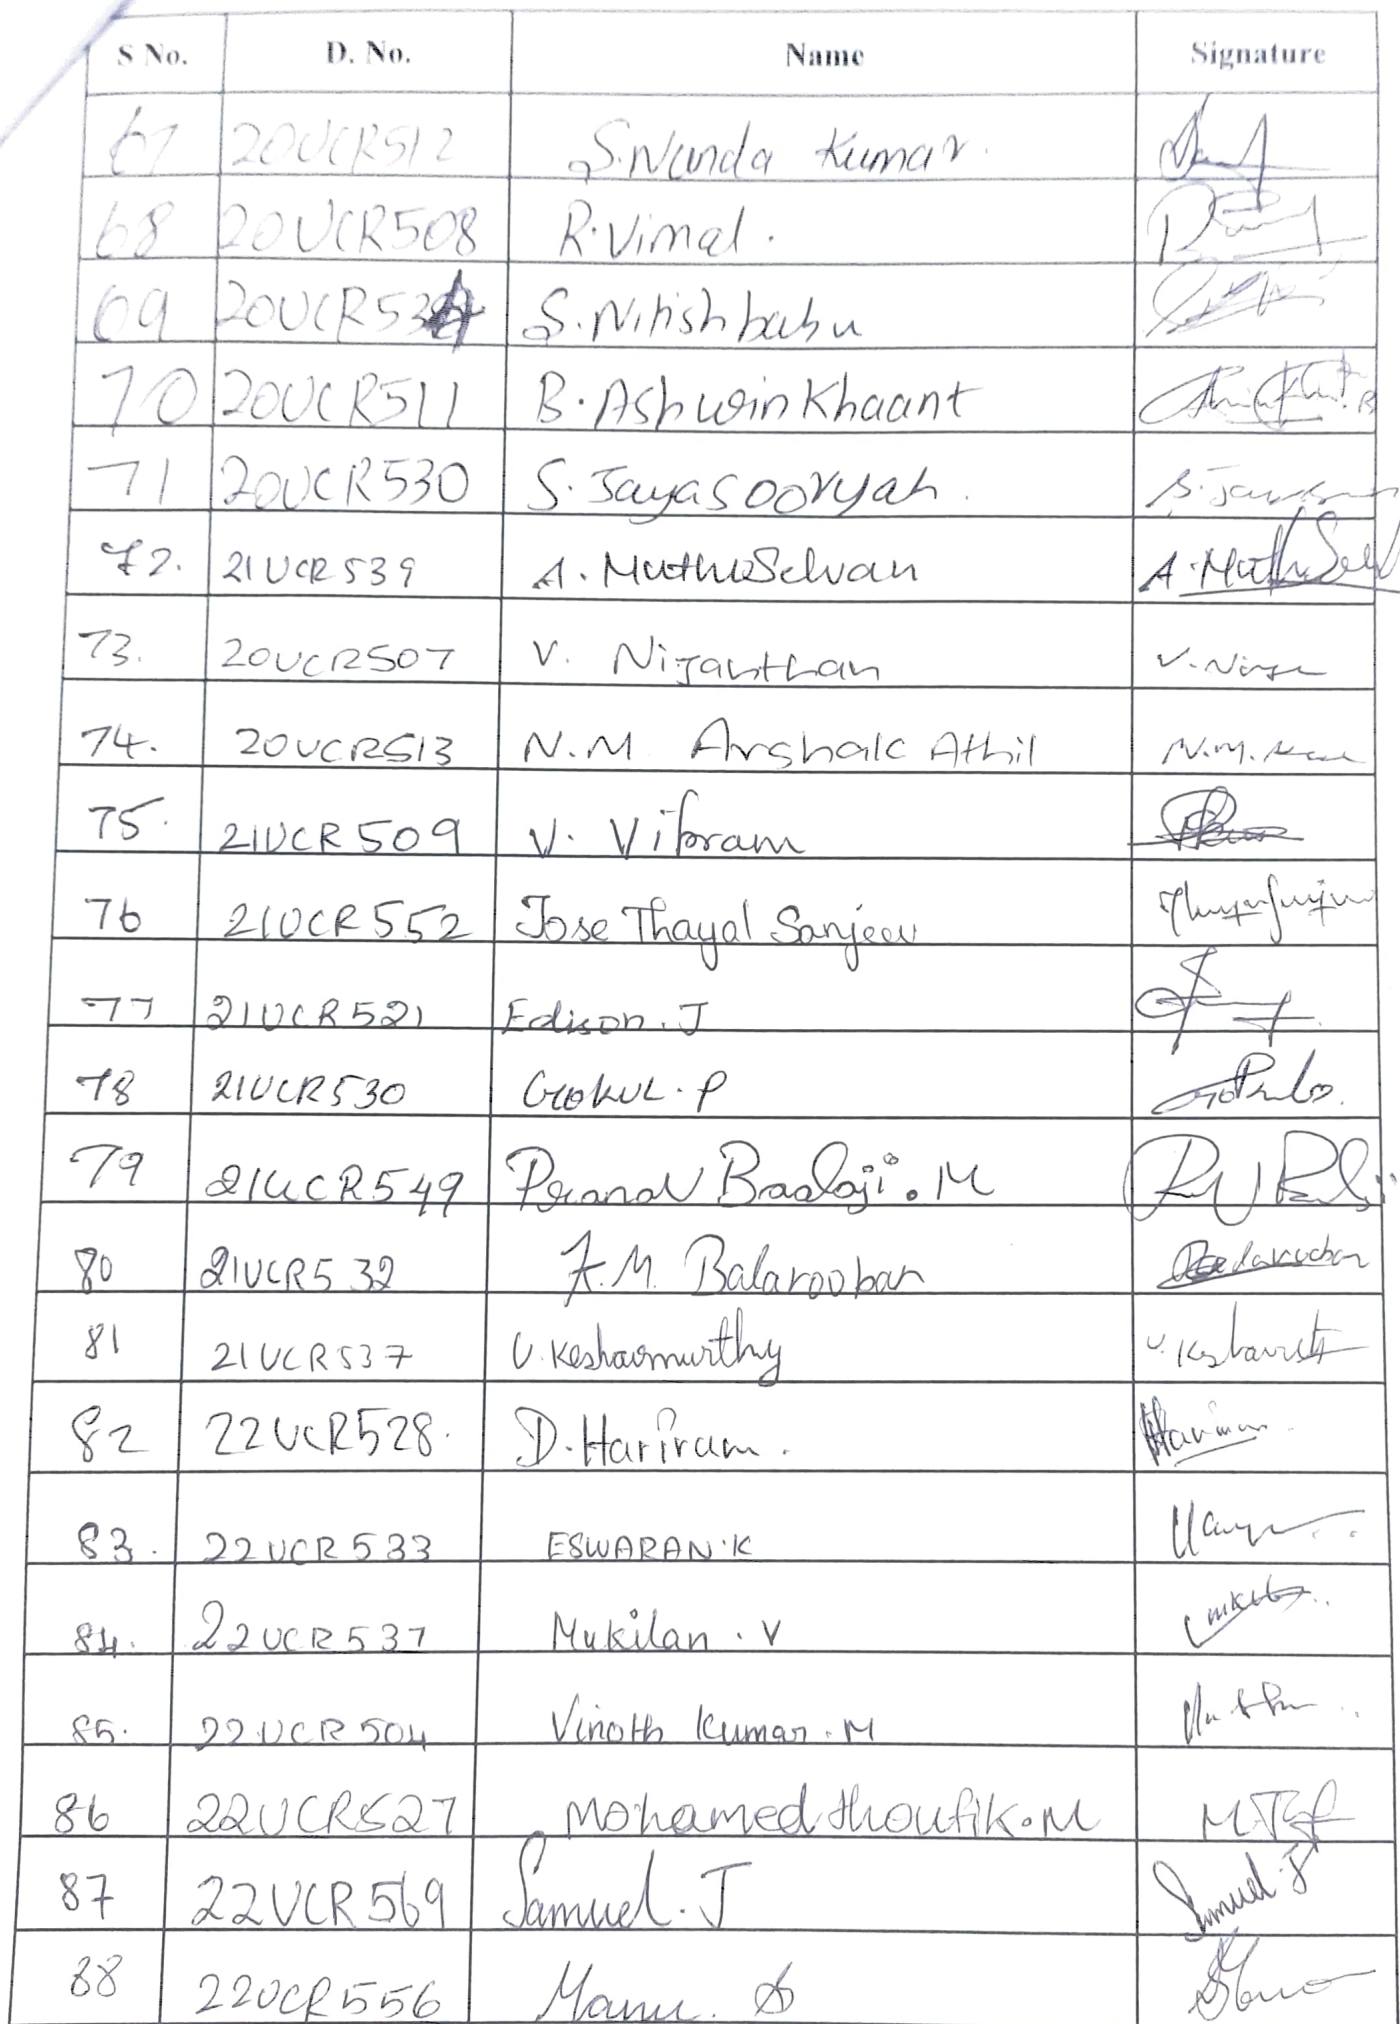 S No. D. No. Name Signature
67 20UCR512 S.Nanda Kumar.
68 20UCR508 R.Vimal.
69 20UCR534 S.Nitishbabu
70 20UCR511 B.AshwinKhaant
71 20UCR530 S.Jayasooryah.
72. 21UCR539 A.MuthuSelvan A.MuthuSelv
73. 20UCR507 V. Nijanthan
74. 20UCR513 N.M Arshak Athil
75. 21UCR509 V. Vikram
76 21UCR552 Jose Thayal Sanjeev
77 21UCR521 Edison.J
78 21UCR530 Gokul.P
79 21UCR549 Pranav Baalaji.M
80 21UCR532 A.M. Balarooban
81 21UCR537 V.Keshavmurthy
82 22UCR528. D.Hariram.
83. 22UCR533 ESWARAN.K
84. 22UCR537 Mukilan.V
85. 22UCR504 Vinoth Kumar.M
86 22UCR527 Mohamed thoufik.M
87 22UCR569 Samuel.J Samuel.J
88 22UCR556